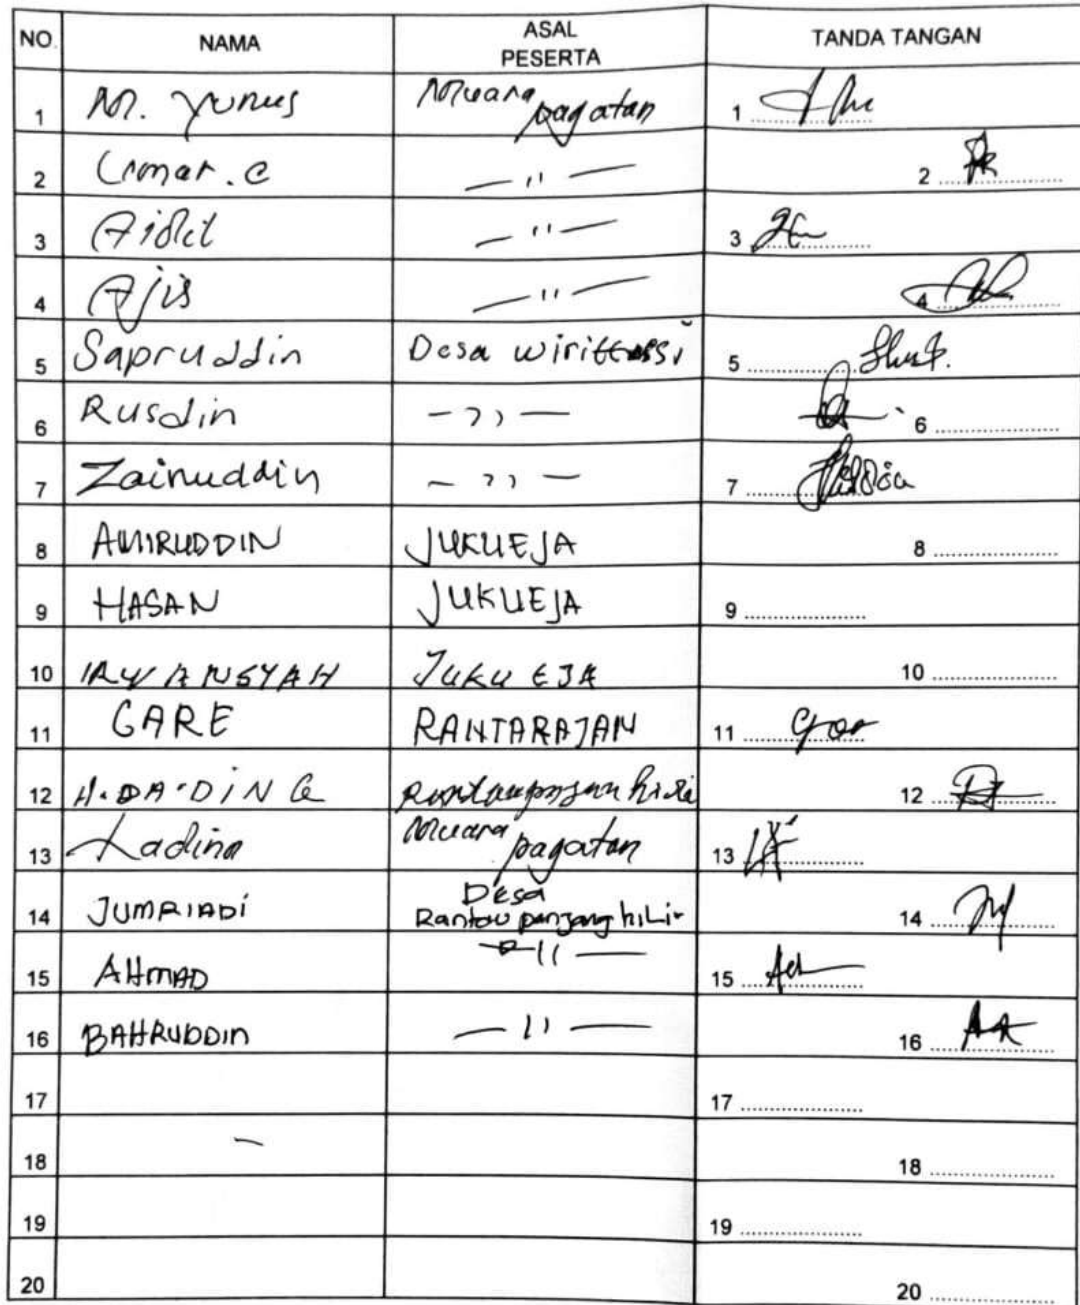 NO. NAMA ASAL PESERTA TANDA TANGAN
1 M. Yunus Muara pagatan 1
2 Umar. C — " — 2
3 Aidil — " — 3
4 Ajis — " — 4
5 Sapruddin Desa wirittasi 5
6 Rusdin — " — 6
7 Zainuddin — " — 7
8 AMIRUDDIN JUKUEJA 8
9 HASAN JUKUEJA 9
10 IRWANSYAH JUKU EJA 10
11 GARE RANTARAJAN 11
12 H. DA'DING 12
13 Ladina Muara pagatan 13
14 JUMRIADI Desa Rantau panjang hiLir 14
15 AHMAD — " — 15
16 BAHRUDDIN — " — 16
17 17
18 18
19 19
20 20